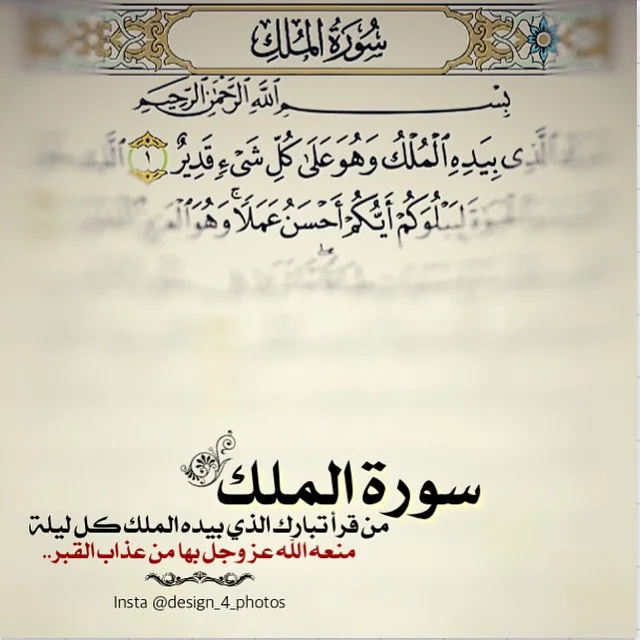 سُورَةُ الْمُلْكِ
بِسْمِ ٱللَّهِ ٱلرَّحْمَٰنِ ٱلرَّحِيمِ
ٱلَّذِى بِيَدِهِ ٱلْمُلْكُ وَهُوَ عَلَىٰ كُلِّ شَىْءٍ قَدِيرٌ ١ ٱلَّذِى
لِيَبْلُوَكُمْ أَيُّكُمْ أَحْسَنُ عَمَلًا ۚ وَهُوَ
سورة الملك
من قرأ تبارك الذي بيده الملك كل ليلة
منعه الله عز وجل بها من عذاب القبر..
Insta @design_4_photos